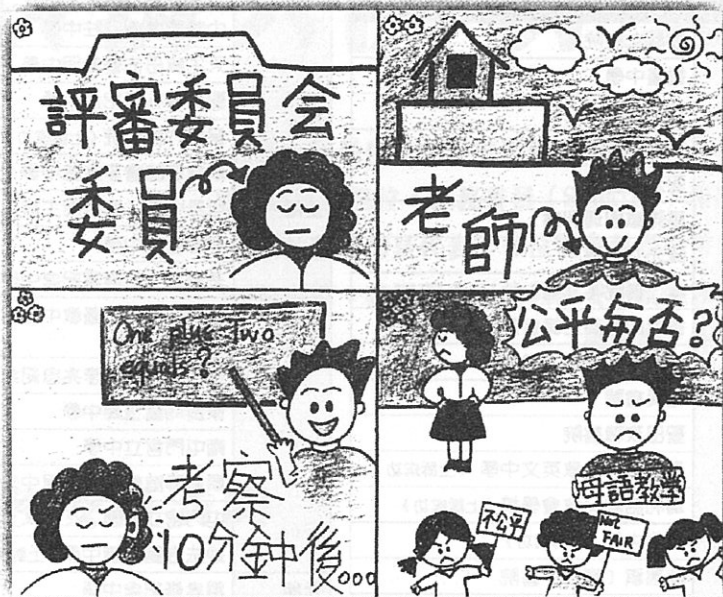 評審委員会
委員
老師
One plus Two
equals?
考察
10分鐘後...
公平每否?
母語教學
不公平
NOT
FAIR